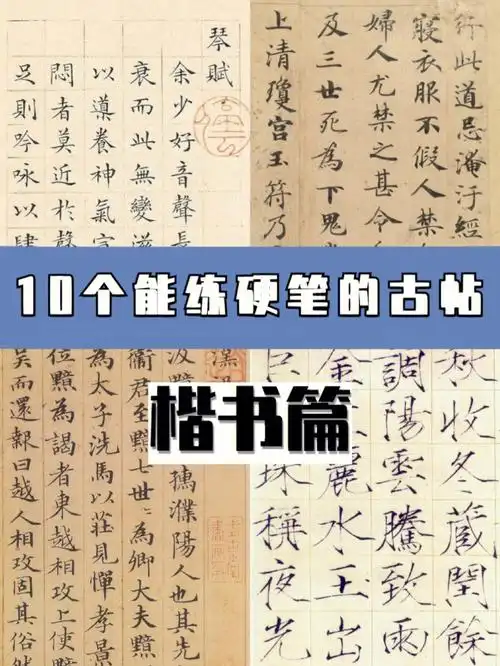 琴賦
余少好音聲長
衰而此無變滋
以導養神氣宣
悶者莫近於聲
足則吟詠以肆
行此道忌淹汙經
寢衣服不假人禁
婦人尤禁之甚令
及三世死為下鬼
上清瓊宮玉符乃
10个能练硬笔的古帖
楷书篇
汲黯
濮陽人也其先
衞君至黯七世世為卿大夫黯
為太子洗馬以莊見憚孝景
位黯為謁者東越相攻上使黯
吳而還報曰越人相攻固其俗然
秋收冬藏閏餘
調陽雲騰致雨
金
麗水玉出
珠稱夜光